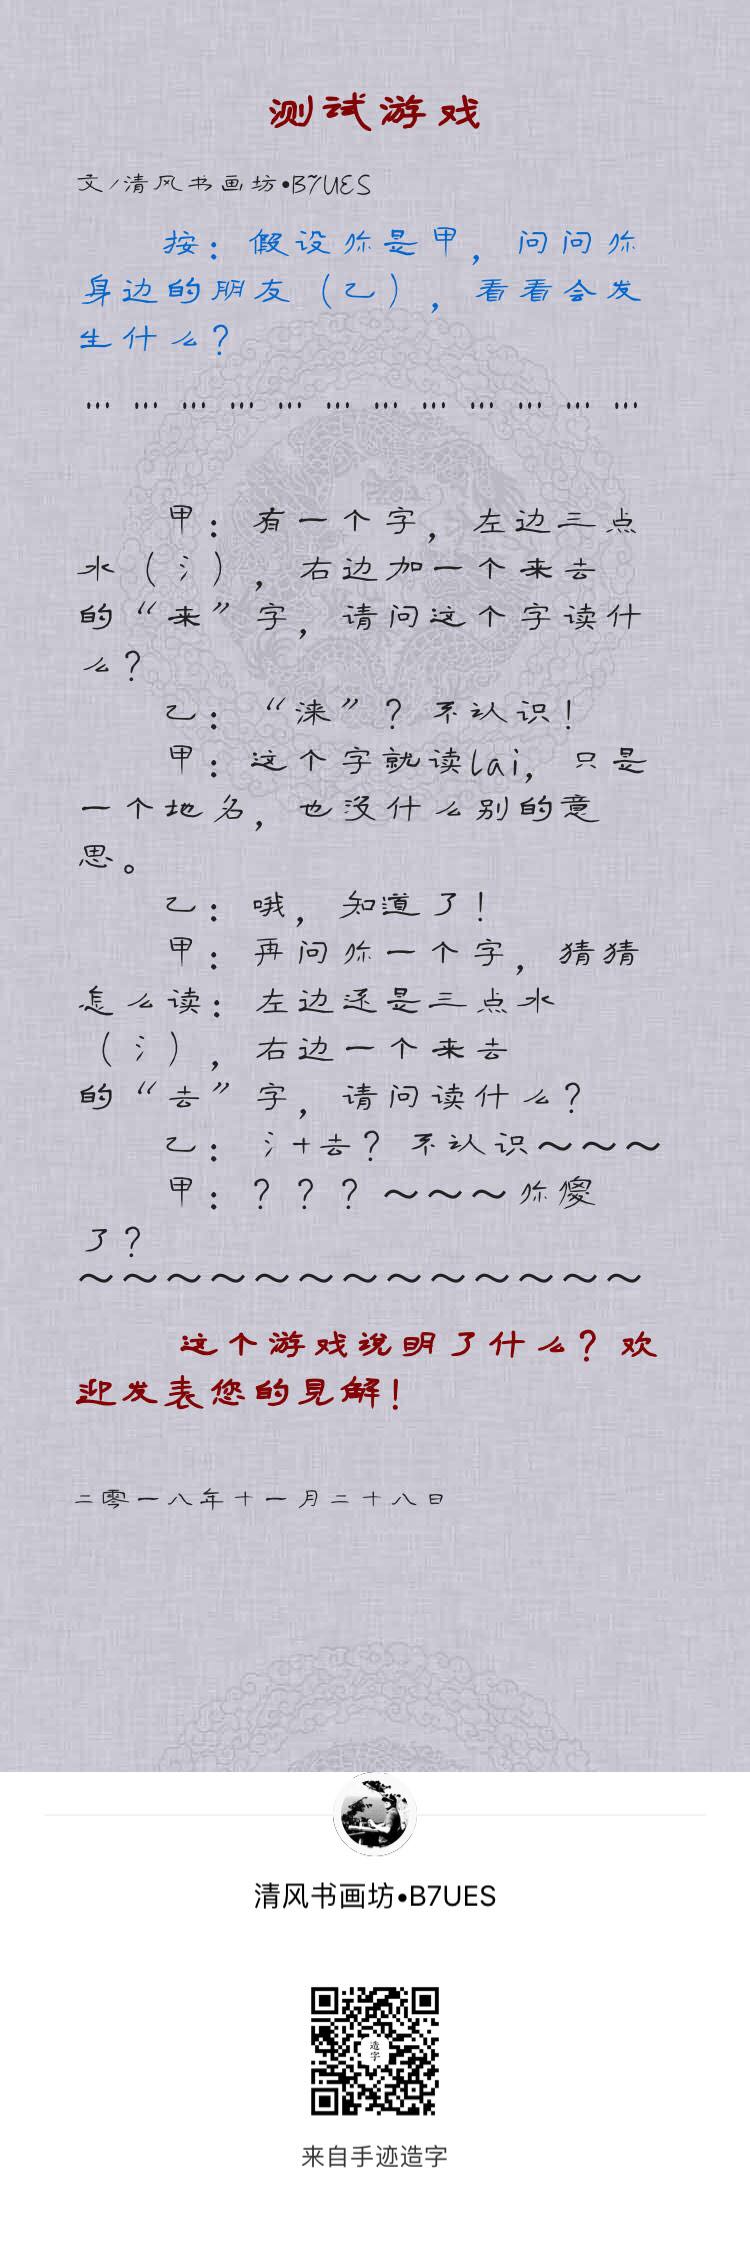 测试游戏
文/清风书画坊•B7UES
按：假设你是甲，问问你
身边的朋友（乙），看看会发
生什么？
… … … … … … … … … … … …
甲：有一个字，左边三点
水（氵），右边加一个来去
的“来”字，请问这个字读什
么？
乙：“涞”？不认识！
甲：这个字就读lai，只是
一个地名，也没什么别的意
思。
乙：哦，知道了！
甲：再问你一个字，猜猜
怎么读：左边还是三点水
（氵），右边一个来去
的“去”字，请问读什么？
乙：氵+去？不认识～～～
甲：？？？～～～你傻
了？
～～～～～～～～～～～～～
这个游戏说明了什么？欢
迎发表您的見解！
二零一八年十一月二十八日
清风书画坊•B7UES
造字
来自手迹造字